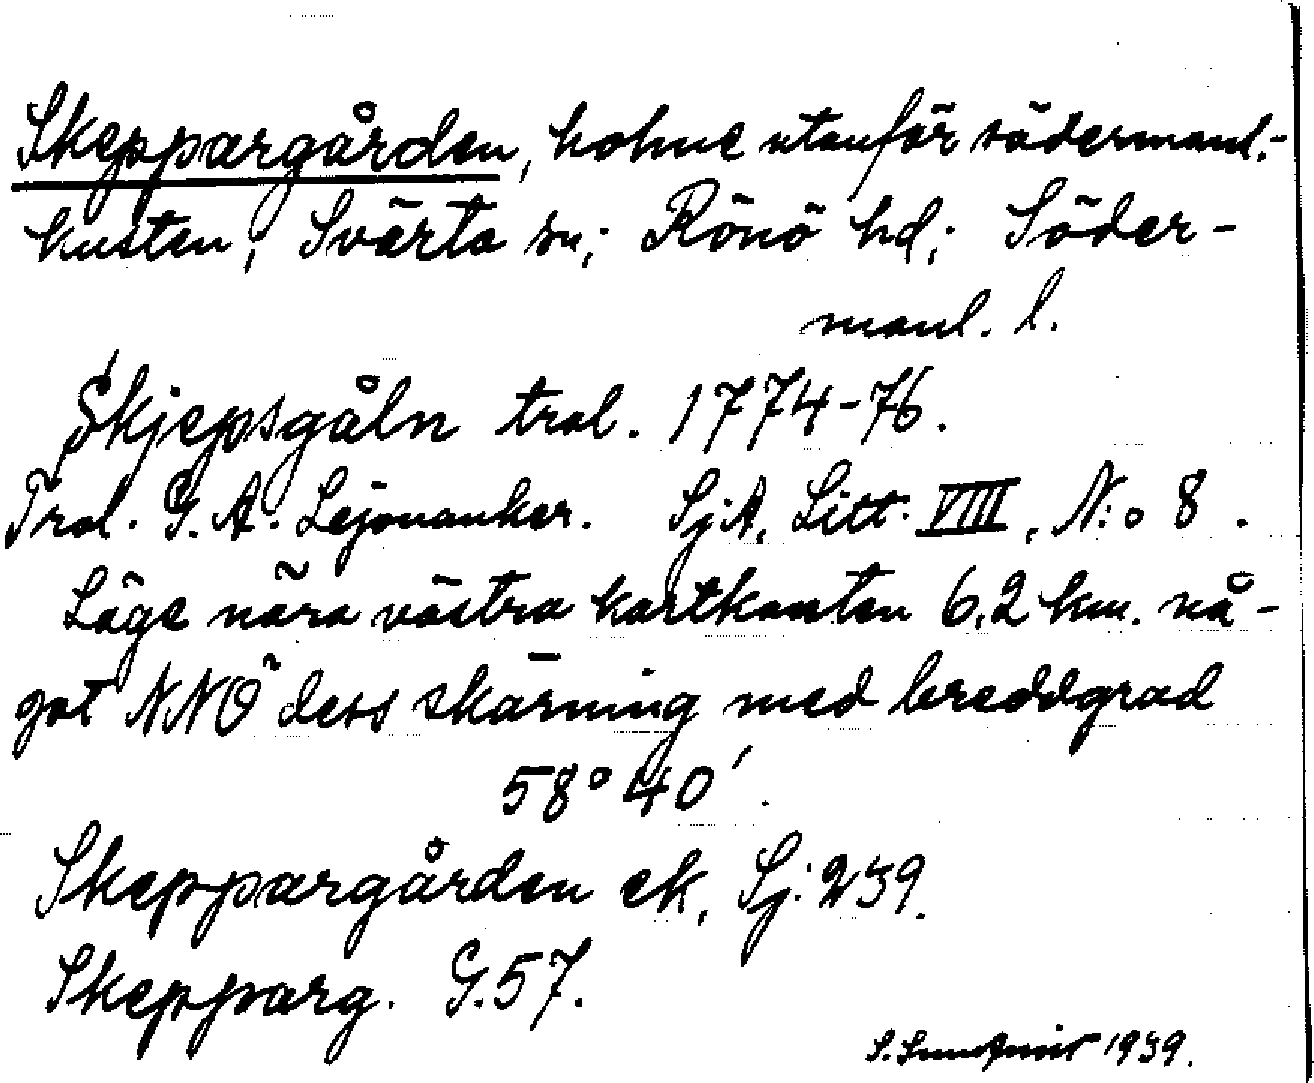 Skeppargården, holme utanför södermanl.-
kusten; Svärta sn; Rönö hd; Söder-
manl. l.
Skjepsgåln trol. 1774-76.
Trol. G. A. Lejonanker. SjA, Litt. VIII, N:o 8.
Läge nära västra kartkanten 6,2 km. nå-
got NNO dess skärning med breddgrad
58° 40'.
Skeppargården ek, Sj: 239.
Skepparg. G.57.
1939.